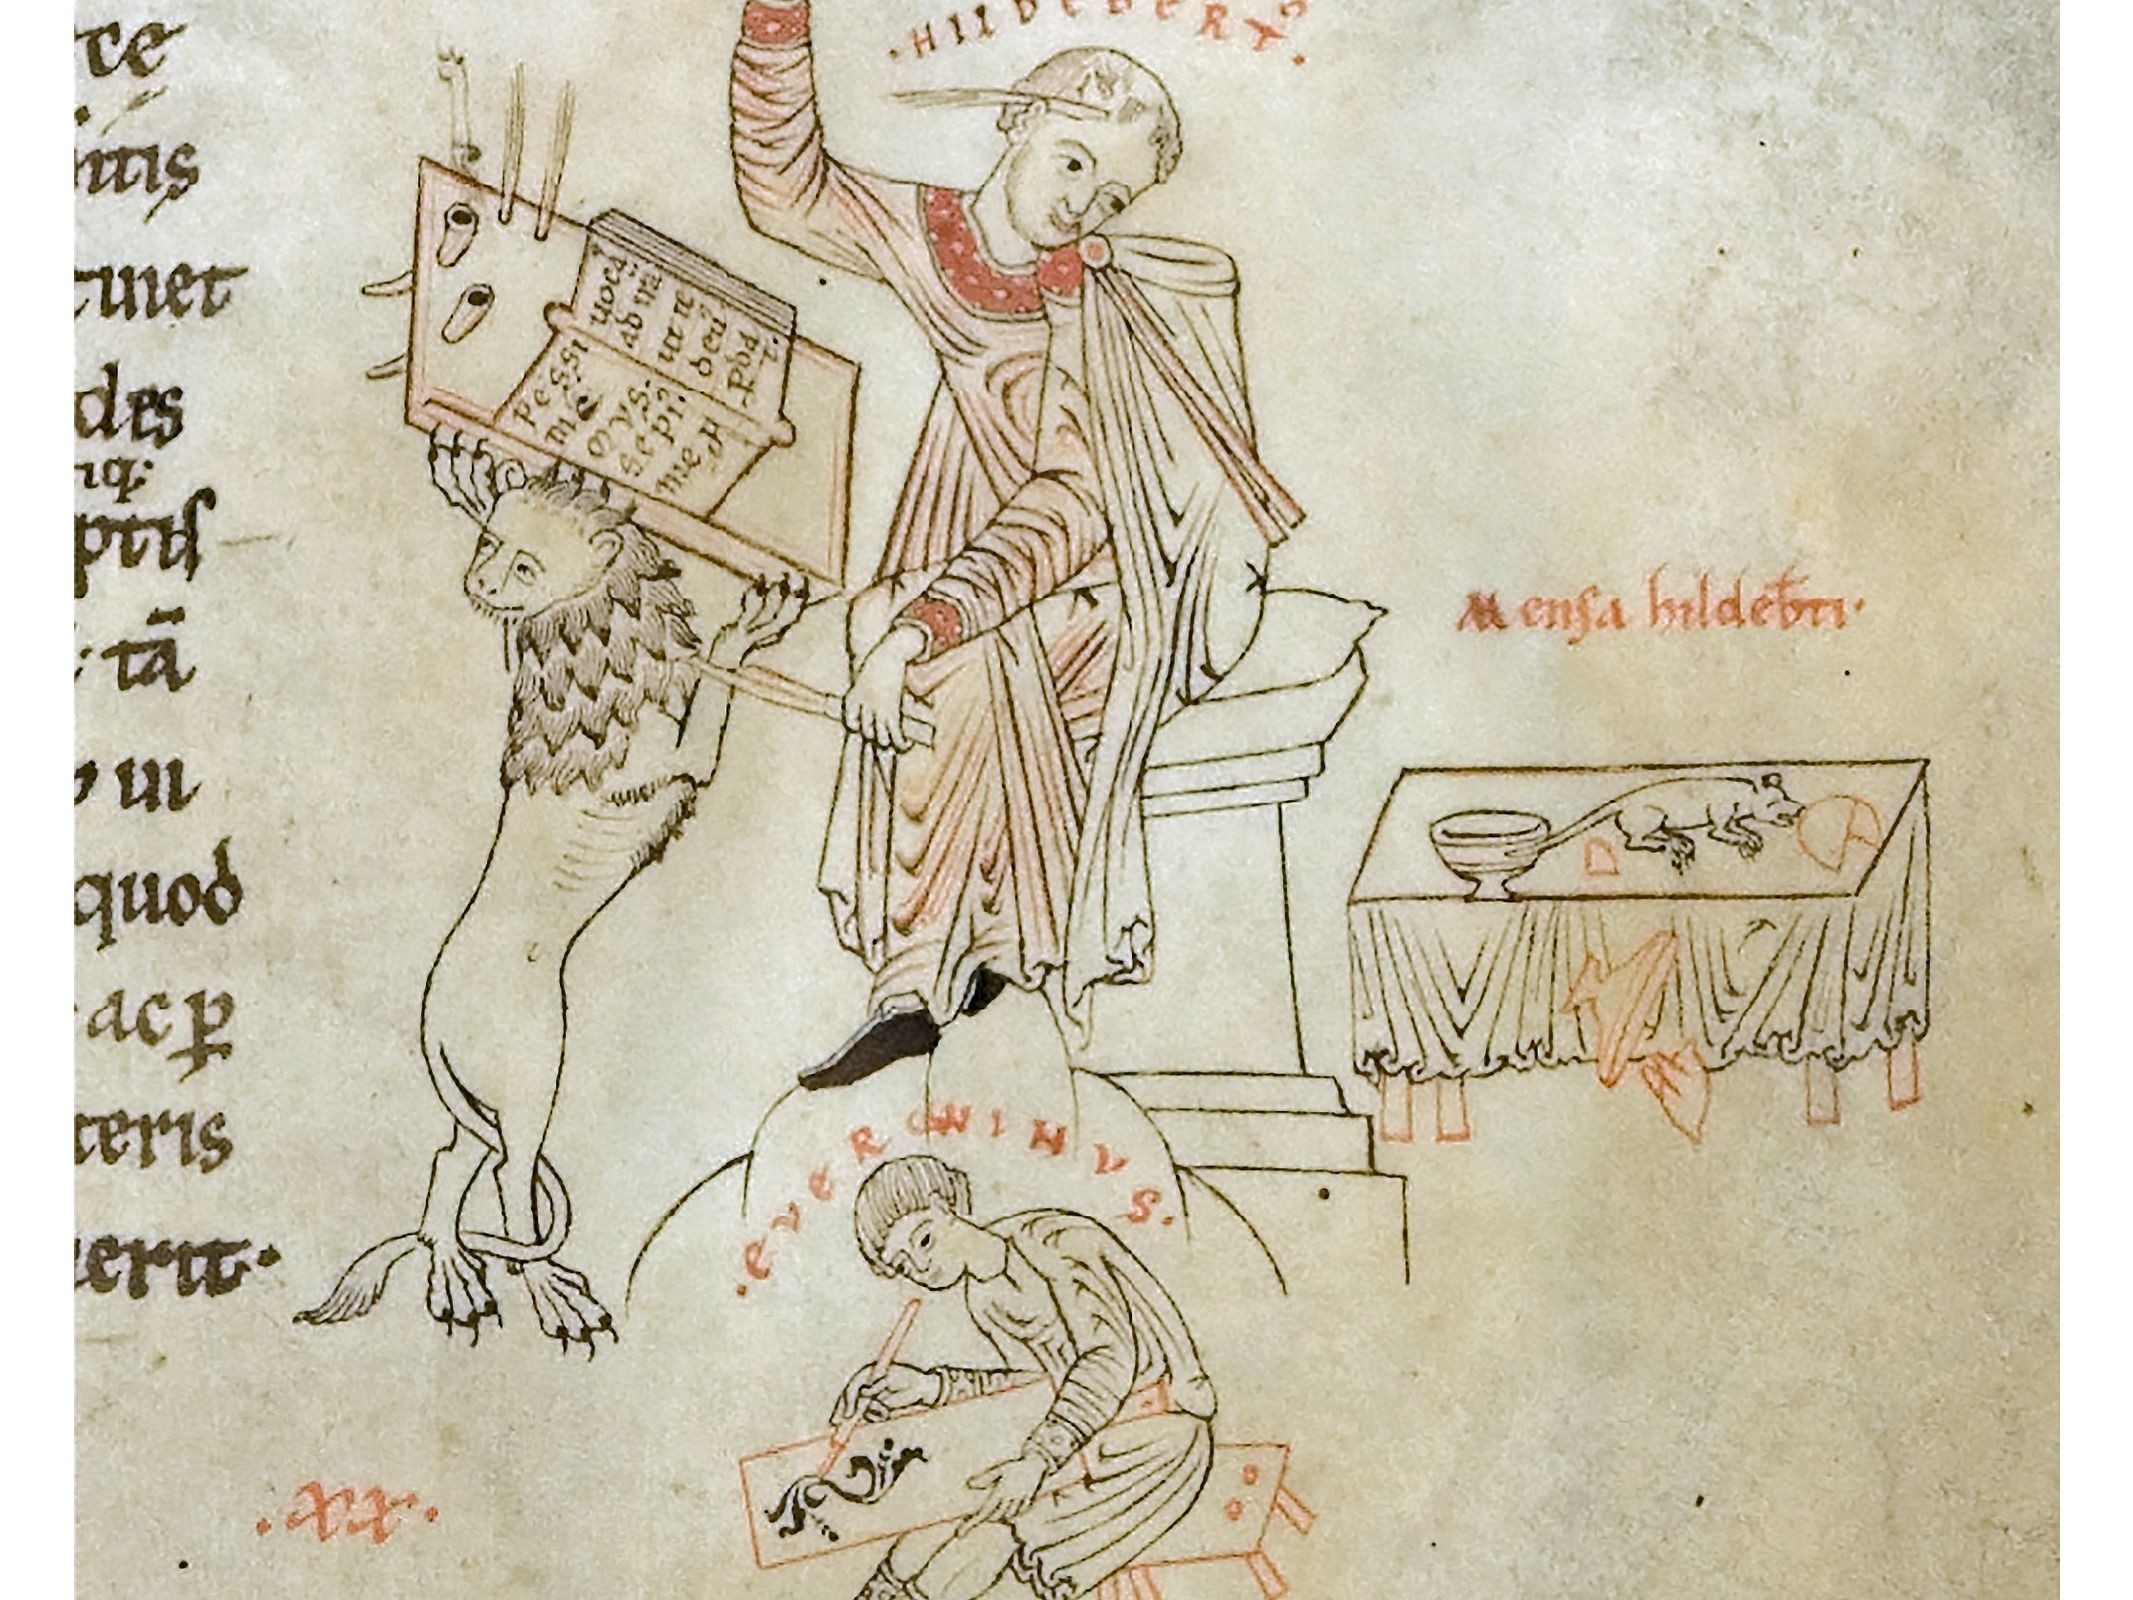 ce
itis
tinet
des
iq:
ptis
tā
ui
quod
ac ꝑ
teris
erit·
·HILDEBERTꝰ·
Pessi
me
mvs.
sepiꝰ
me ꝓ
uocas
ad irā
ut te
deuꝰ
pdat.
Mensa hildeb̄ti·
·EVERWINVS.
·xx·